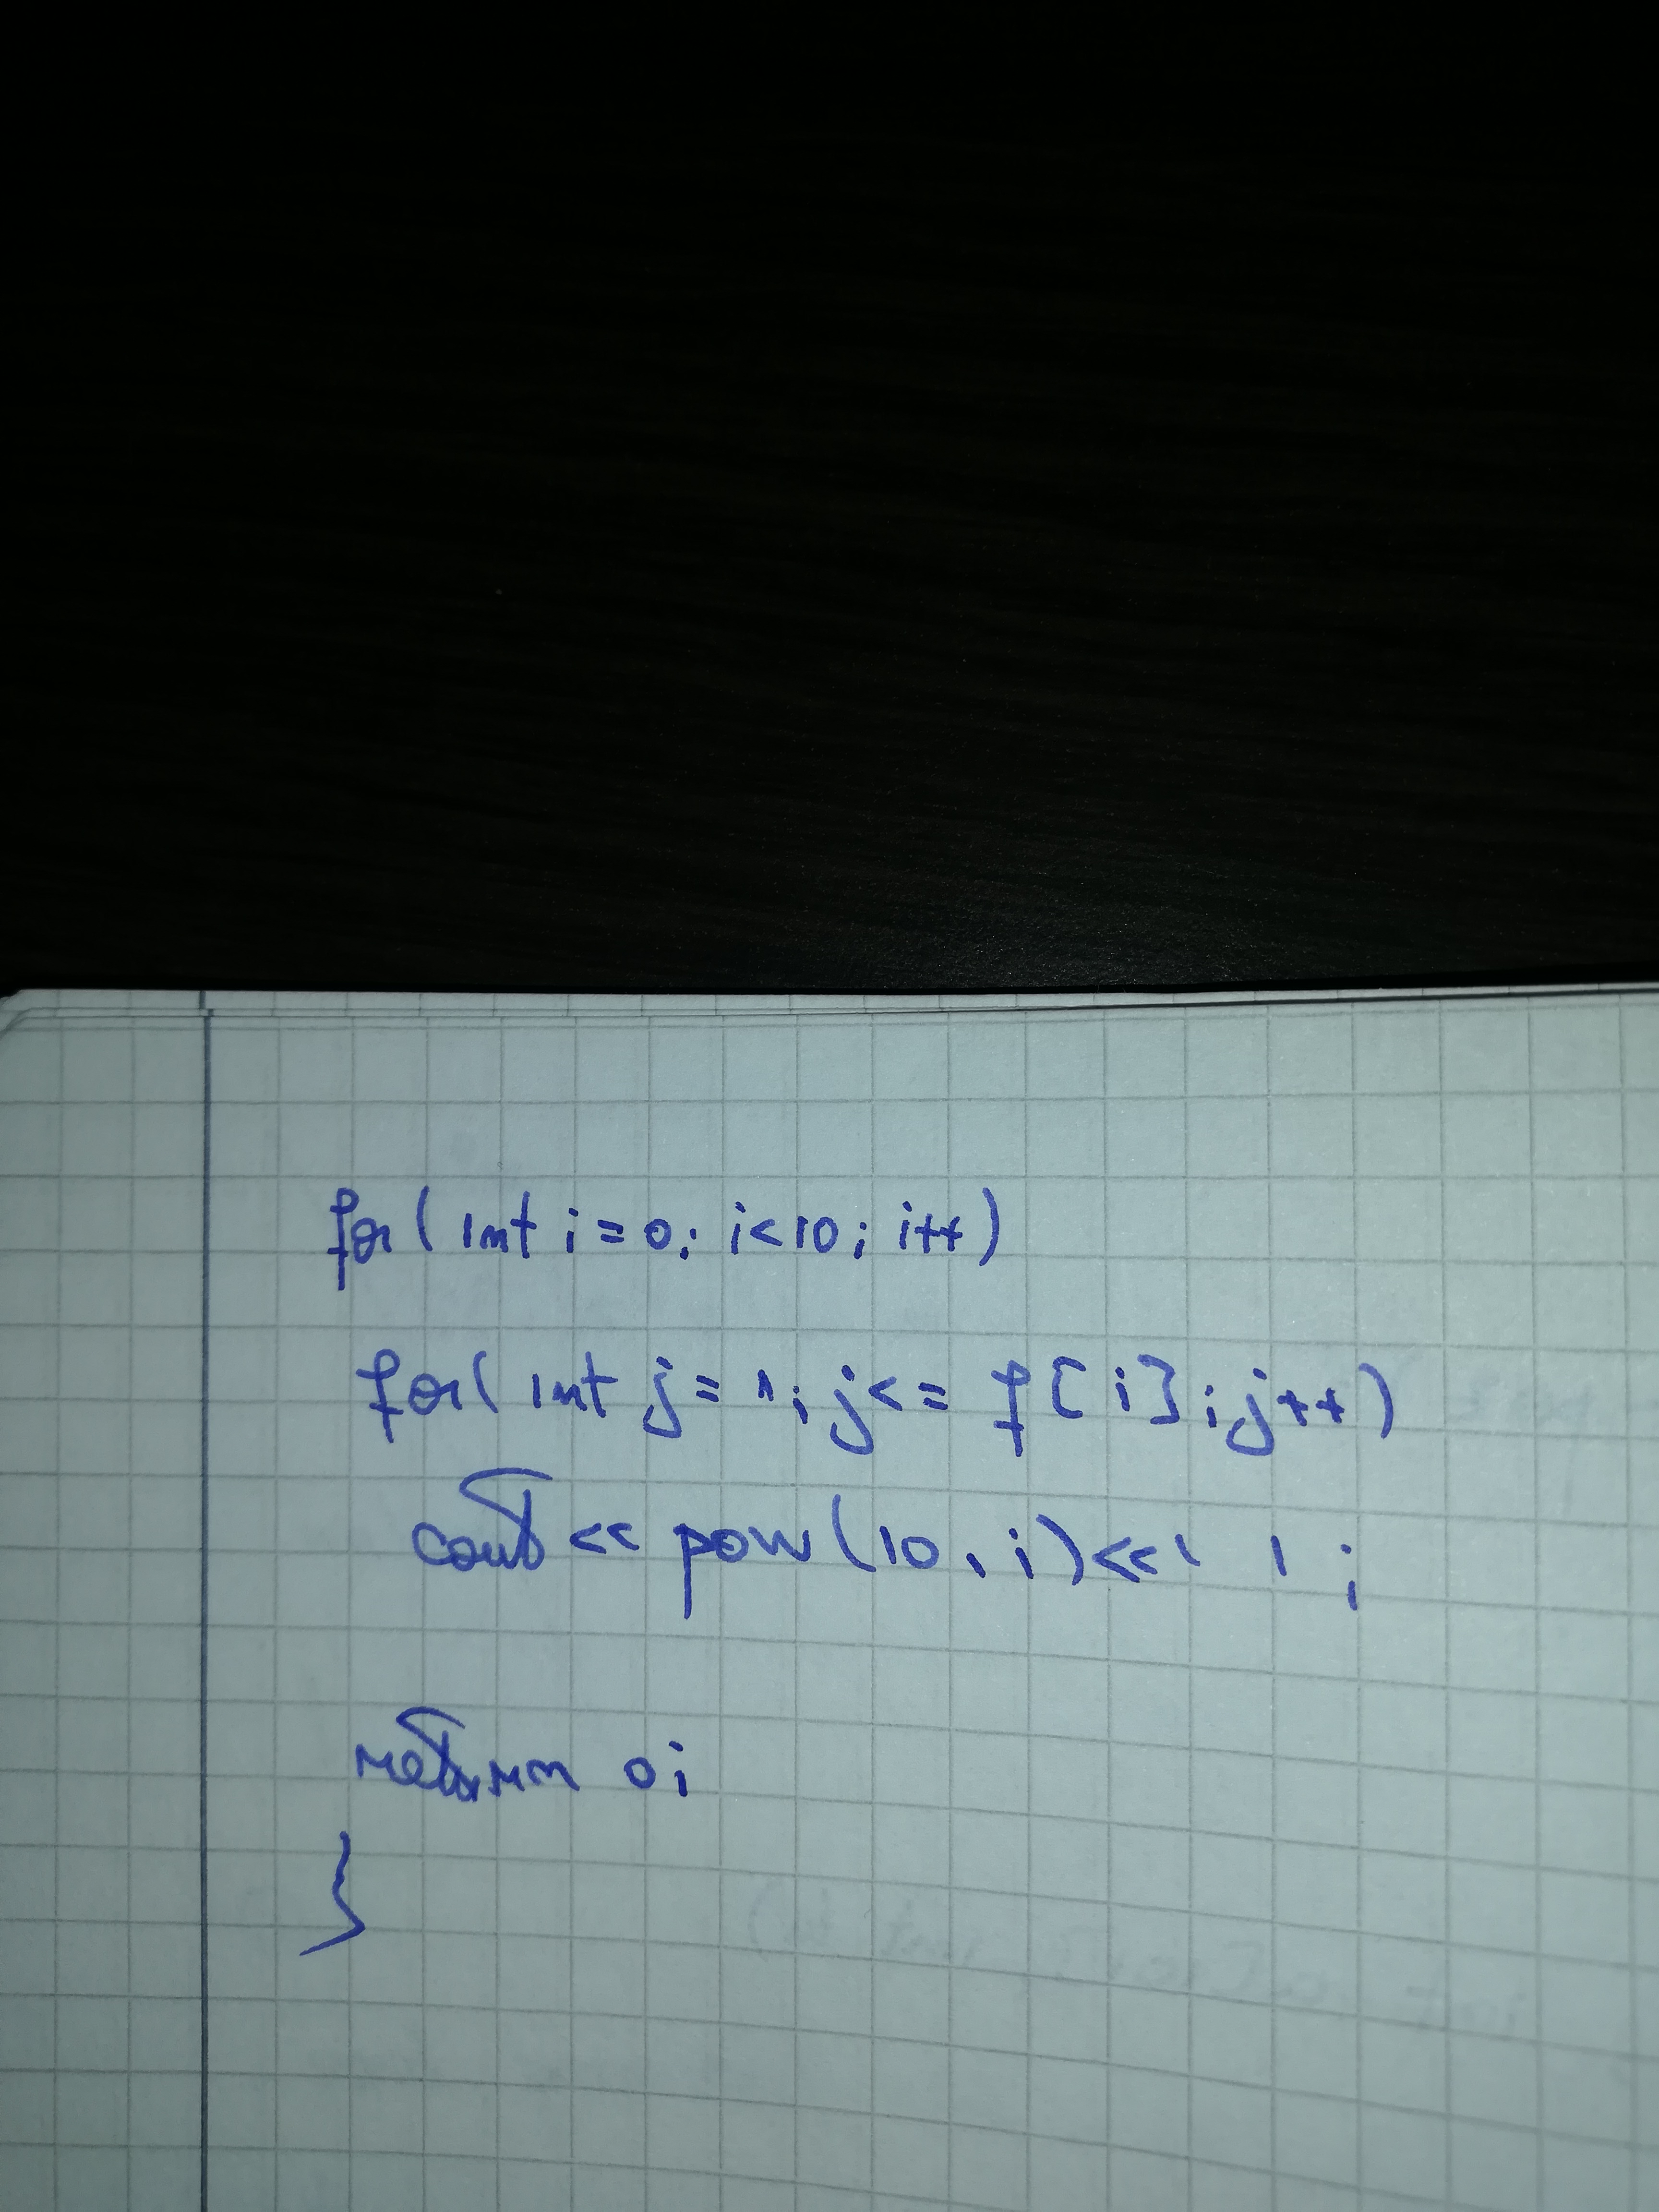 for(int i=0; i<10; i++)
for(int j=1; j<= f[i]; j++)
cout << pow(10,i)<<' ';
return 0;
}